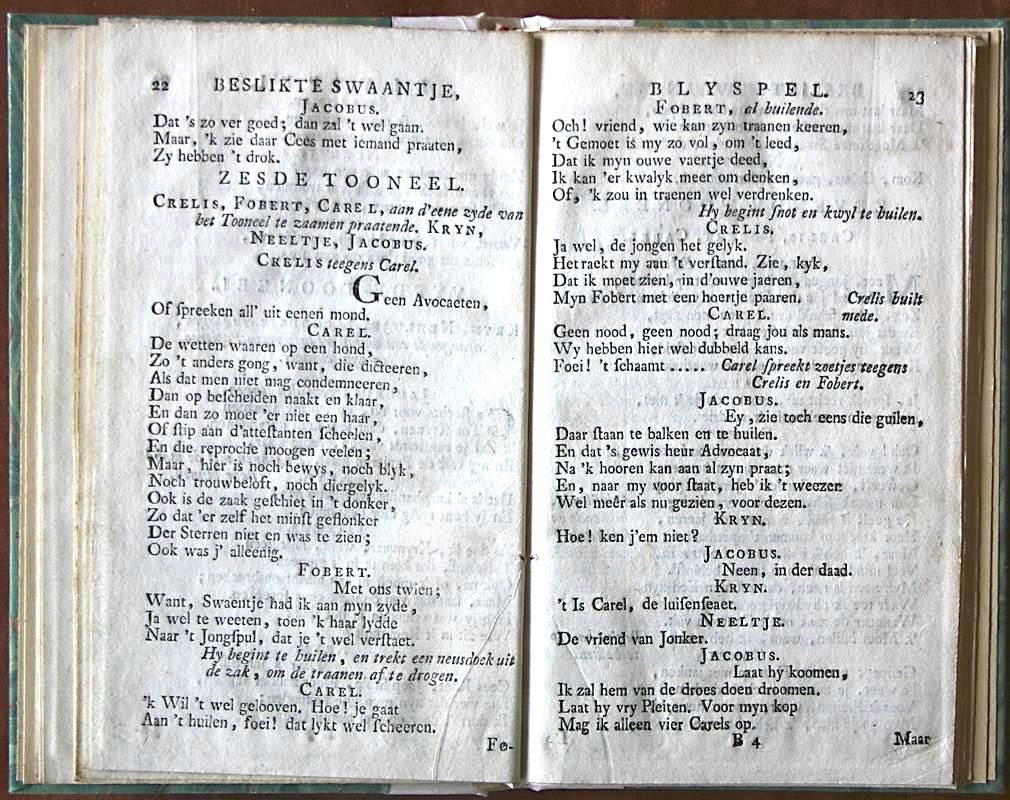 22 BESLIKTE SWAANTJE,
JACOBUS.
Dat 's zo ver goed; dan zal 't wel gaan.
Maar, 'k zie daar Cees met iemand praaten,
Zy hebben 't drok.
ZESDE TOONEEL.
CRELIS, FOBERT, CAREL, aan d'eene zyde van
het Tooneel te zaamen praatende. KRYN,
NEELTJE, JACOBUS.
CRELIS teegens Carel.
Geen Avocaeten,
Of ſpreeken all' uit eenen mond.
CAREL.
De wetten waaren op een hond,
Zo 't anders gong, want, die dicteeren,
Als dat men niet mag condemneeren,
Dan op beſcheiden naakt en klaar,
En dan zo moet 'er niet een haar,
Of ſtip aan d'atteſtanten ſcheelen,
En die reproche moogen veelen;
Maar, hier is noch bewys, noch blyk,
Noch trouwbeloft, noch diergelyk.
Ook is de zaak geſchiet in 't donker,
Zo dat 'er zelf het minſt geflonker
Der Sterren niet en was te zien;
Ook was j' alleenig.
FOBERT.
Met ons twien;
Want, Swaentje had ik aan myn zyde,
Ja wel te weeten, toen 'k haar lydde
Naar 't Jongſpul, dat je 't wel verſtaet.
Hy begint te huilen, en trekt een neusdoek uit
de zak, om de traanen af te drogen.
CAREL.
'k Wil 't wel gelooven. Hoe! je gaat
Aan 't huilen, foei! dat lykt wel ſcheeren.
Fo-
BLYSPEL. 23
FOBERT, al huilende.
Och! vriend, wie kan zyn traanen keeren,
't Gemoet is my zo vol, om 't leed,
Dat ik myn ouwe vaertje deed,
Ik kan 'er kwalyk meer om denken,
Of, 'k zou in traenen wel verdrenken.
Hy begint ſnot en kwyl te huilen.
CRELIS.
Ja wel, de jongen het gelyk.
Het raekt my aan 't verſtand. Zie, kyk,
Dat ik moet zien, in d'ouwe jaeren,
Myn Fobert met een hoertje paaren. Crelis huilt
CAREL. mede.
Geen nood, geen nood; draag jou als mans.
Wy hebben hier wel dubbeld kans.
Foei! 't ſchaamt ..... Carel ſpreekt zoetjes teegens
Crelis en Fobert.
JACOBUS.
Ey, zie toch eens die guilen,
Daar ſtaan te balken en te huilen.
En dat 's gewis heur Advocaat,
Na 'k hooren kan aan al zyn praat;
En, naar my voor ſtaat, heb ik 't weezen
Wel meêr als nu gezien, voor dezen.
KRYN.
Hoe! ken j'em niet?
JACOBUS.
Neen, in der daad.
KRYN.
't Is Carel, de luiſenſeaet.
NEELTJE.
De vriend van Jonker.
JACOBUS.
Laat hy koomen,
Ik zal hem van de droes doen droomen.
Laat hy vry Pleiten. Voor myn kop
Mag ik alleen vier Carels op.
B 4 Maar